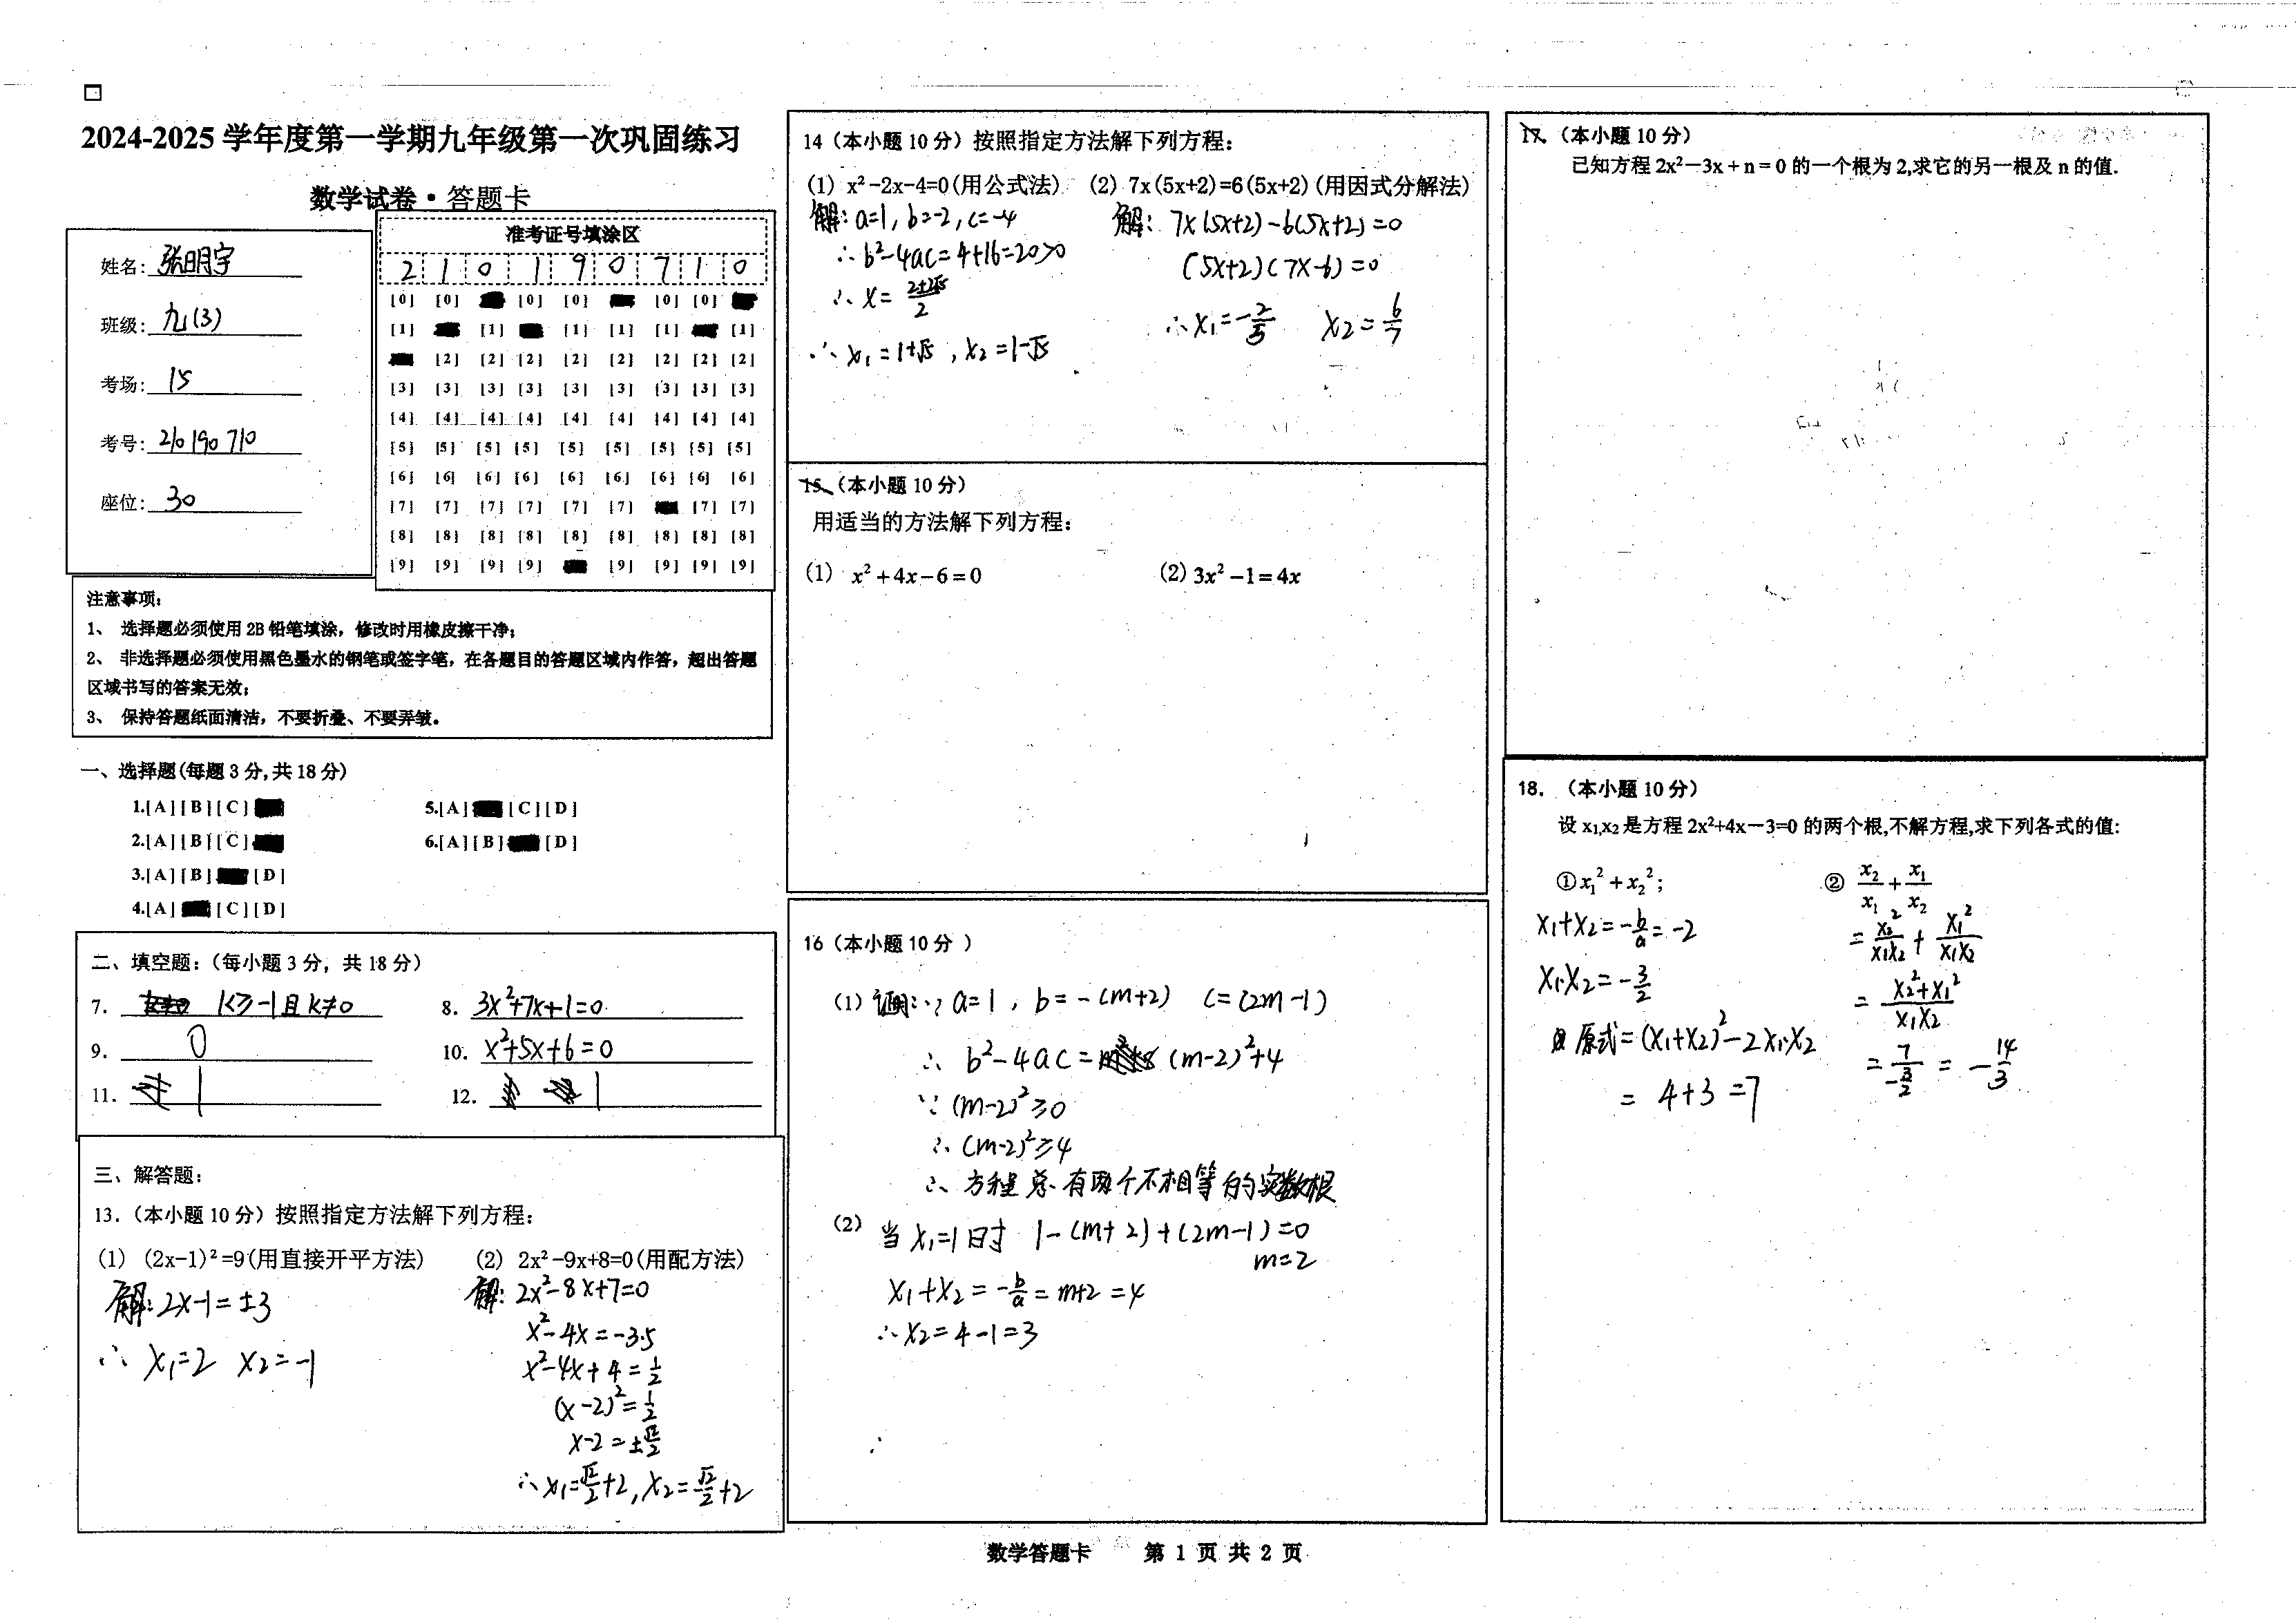 2024-2025 学年度第一学期九年级第一次巩固练习
数学试卷·答题卡
姓名: 张明宇
班级: 九(3)
考场: 15
考号: 210190710
座位: 30
准考证号填涂区
2 1 0 1 9 0 7 1 0
[0] [0] [0] [0] [0] [0]
[1] [1] [1] [1] [1] [1]
[2] [2] [2] [2] [2] [2] [2] [2]
[3] [3] [3] [3] [3] [3] [3] [3] [3]
[4] [4] [4] [4] [4] [4] [4] [4] [4]
[5] [5] [5] [5] [5] [5] [5] [5] [5]
[6] [6] [6] [6] [6] [6] [6] [6] [6]
[7] [7] [7] [7] [7] [7] [7] [7]
[8] [8] [8] [8] [8] [8] [8] [8] [8]
[9] [9] [9] [9] [9] [9] [9] [9]
注意事项:
1、 选择题必须使用 2B 铅笔填涂，修改时用橡皮擦干净;
2、 非选择题必须使用黑色墨水的钢笔或签字笔，在各题目的答题区域内作答，超出答题
区域书写的答案无效;
3、 保持答题纸面清洁，不要折叠、不要弄皱。
一、选择题(每题 3 分,共 18 分)
1.[A][B][C]
2.[A][B][C]
3.[A][B] [D]
4.[A] [C][D]
5.[A] [C][D]
6.[A][B] [D]
二、填空题:（每小题 3 分，共 18 分）
7. k≥-1且k≠0
8. 3x²+7x+1=0
9. 0
10. x²+5x+6=0
11. 1
12. 1
三、解答题:
13.（本小题 10 分）按照指定方法解下列方程:
(1) (2x-1)²=9(用直接开平方法)
解:2x-1=±3
∴ x₁=2 x₂=-1
(2) 2x²-9x+8=0(用配方法)
解: 2x²-8x+7=0
x²-4x=-3.5
x²-4x+4=1/2
(x-2)²=1/2
x-2=±√2/2
∴x₁=√2/2+2, x₂=√2/2+2
14（本小题 10 分）按照指定方法解下列方程:
(1) x²-2x-4=0(用公式法)
解: a=1, b=-2, c=-4
∴b²-4ac=4+16=20>0
∴ x=(2±2√5)/2
∴ x₁=1+√5, x₂=1-√5
(2) 7x(5x+2)=6(5x+2)(用因式分解法)
解: 7x(5x+2)-6(5x+2)=0
(5x+2)(7x-6)=0
∴x₁=-2/5 x₂=6/7
15.（本小题 10 分）
用适当的方法解下列方程:
(1) x²+4x-6=0
(2) 3x²-1=4x
16（本小题 10 分 ）
(1) 证明:∵a=1, b=-(m+2) c=(2m-1)
∴ b²-4ac= (m-2)²+4
∵ (m-2)²≥0
∴ (m-2)²≥4
∴ 方程总有两个不相等的实数根
(2) 当x₁=1时 1-(m+2)+(2m-1)=0
m=2
x₁+x₂=-b/a=m+2=4
∴x₂=4-1=3
17.（本小题 10 分）
已知方程 2x²-3x+n=0 的一个根为 2,求它的另一根及 n 的值.
18. （本小题 10 分）
设 x₁,x₂ 是方程 2x²+4x-3=0 的两个根,不解方程,求下列各式的值:
①x₁²+x₂²;
x₁+x₂=-b/a=-2
x₁·x₂=-3/2
原式=(x₁+x₂)²-2x₁·x₂
= 4+3=7
② x₂/x₁+x₁/x₂
=x₂²/x₁x₂+x₁²/x₁x₂
=(x₂²+x₁²)/x₁x₂
=7/(-3/2)=-14/3
数学答题卡 第 1 页 共 2 页